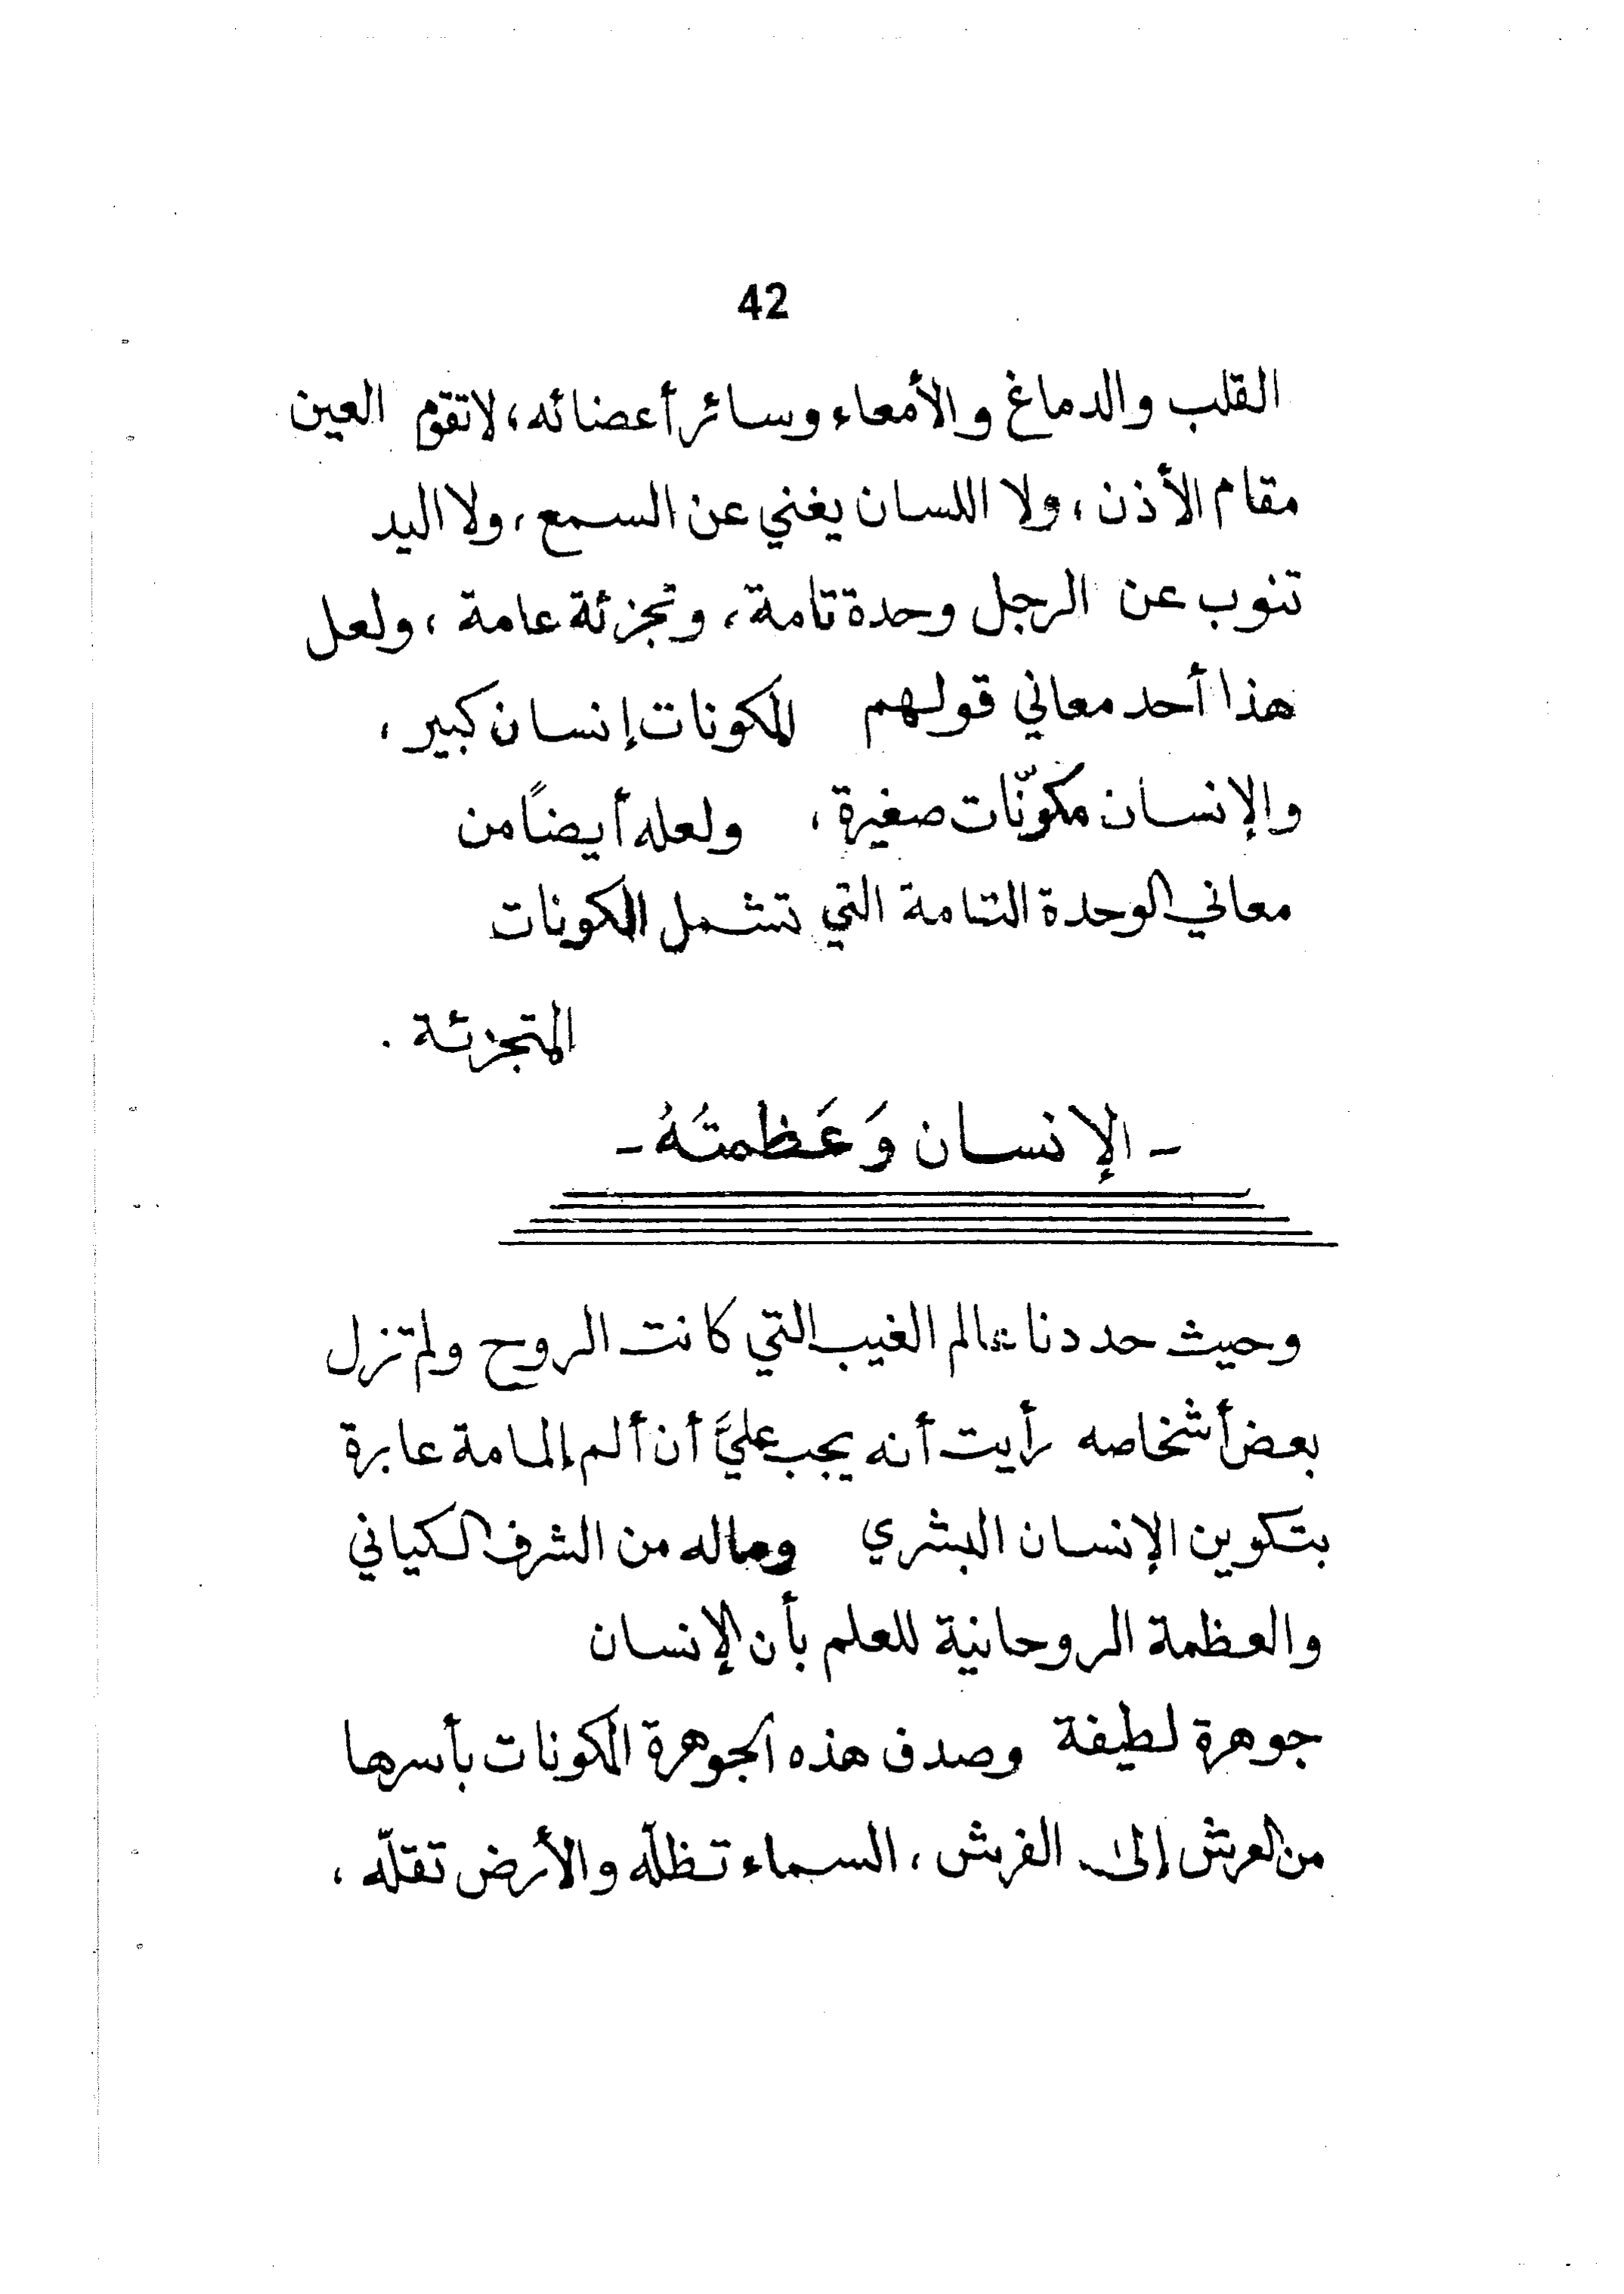 42
القلب والدماغ والأمعاء وسائر أعضائه، لا تقوم العين
مقام الأذن، ولا اللسان يغني عن السمع، ولا اليد
تنوب عن الرجل وحدة تامة، وتجزئة عامة، ولعل
هذا أحد معاني قولهم المكونات إنسان كبير،
والإنسان مكوّنات صغيرة، ولعله أيضاً من
معاني الوحدة التامة التي تشمل المكونات
المتجزئة .
- الإنسان وَعَظمتَهُ -
وحيث حددنا عالم الغيب التي كانت الروح ولم تزل
بعض أشخاصه رأيت أنه يجب عليَّ أن ألم إلمامة عابرة
بتكوين الإنسان البشري وماله من الشرف الكياني
والعظمة الروحانية للعلم بأن الإنسان
جوهرة لطيفة وصدف هذه الجوهرة المكونات بأسرها
من العرش إلى الفرش، السماء تظلّه والأرض تقلّه،